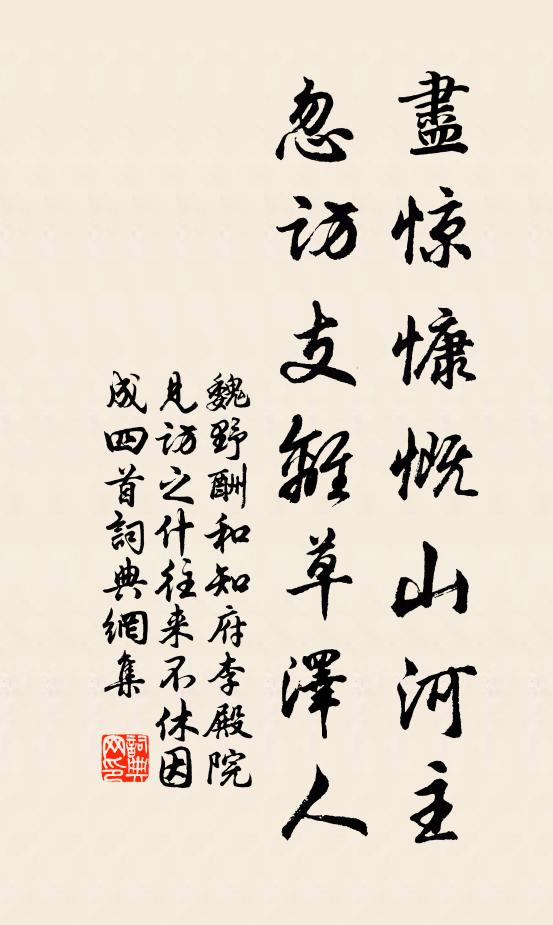 盡惊慷慨山河主
忽訪支離草澤人
魏野酬和知府李殿院
見訪之什往来不休因
成四首詞典網集
詞典网印